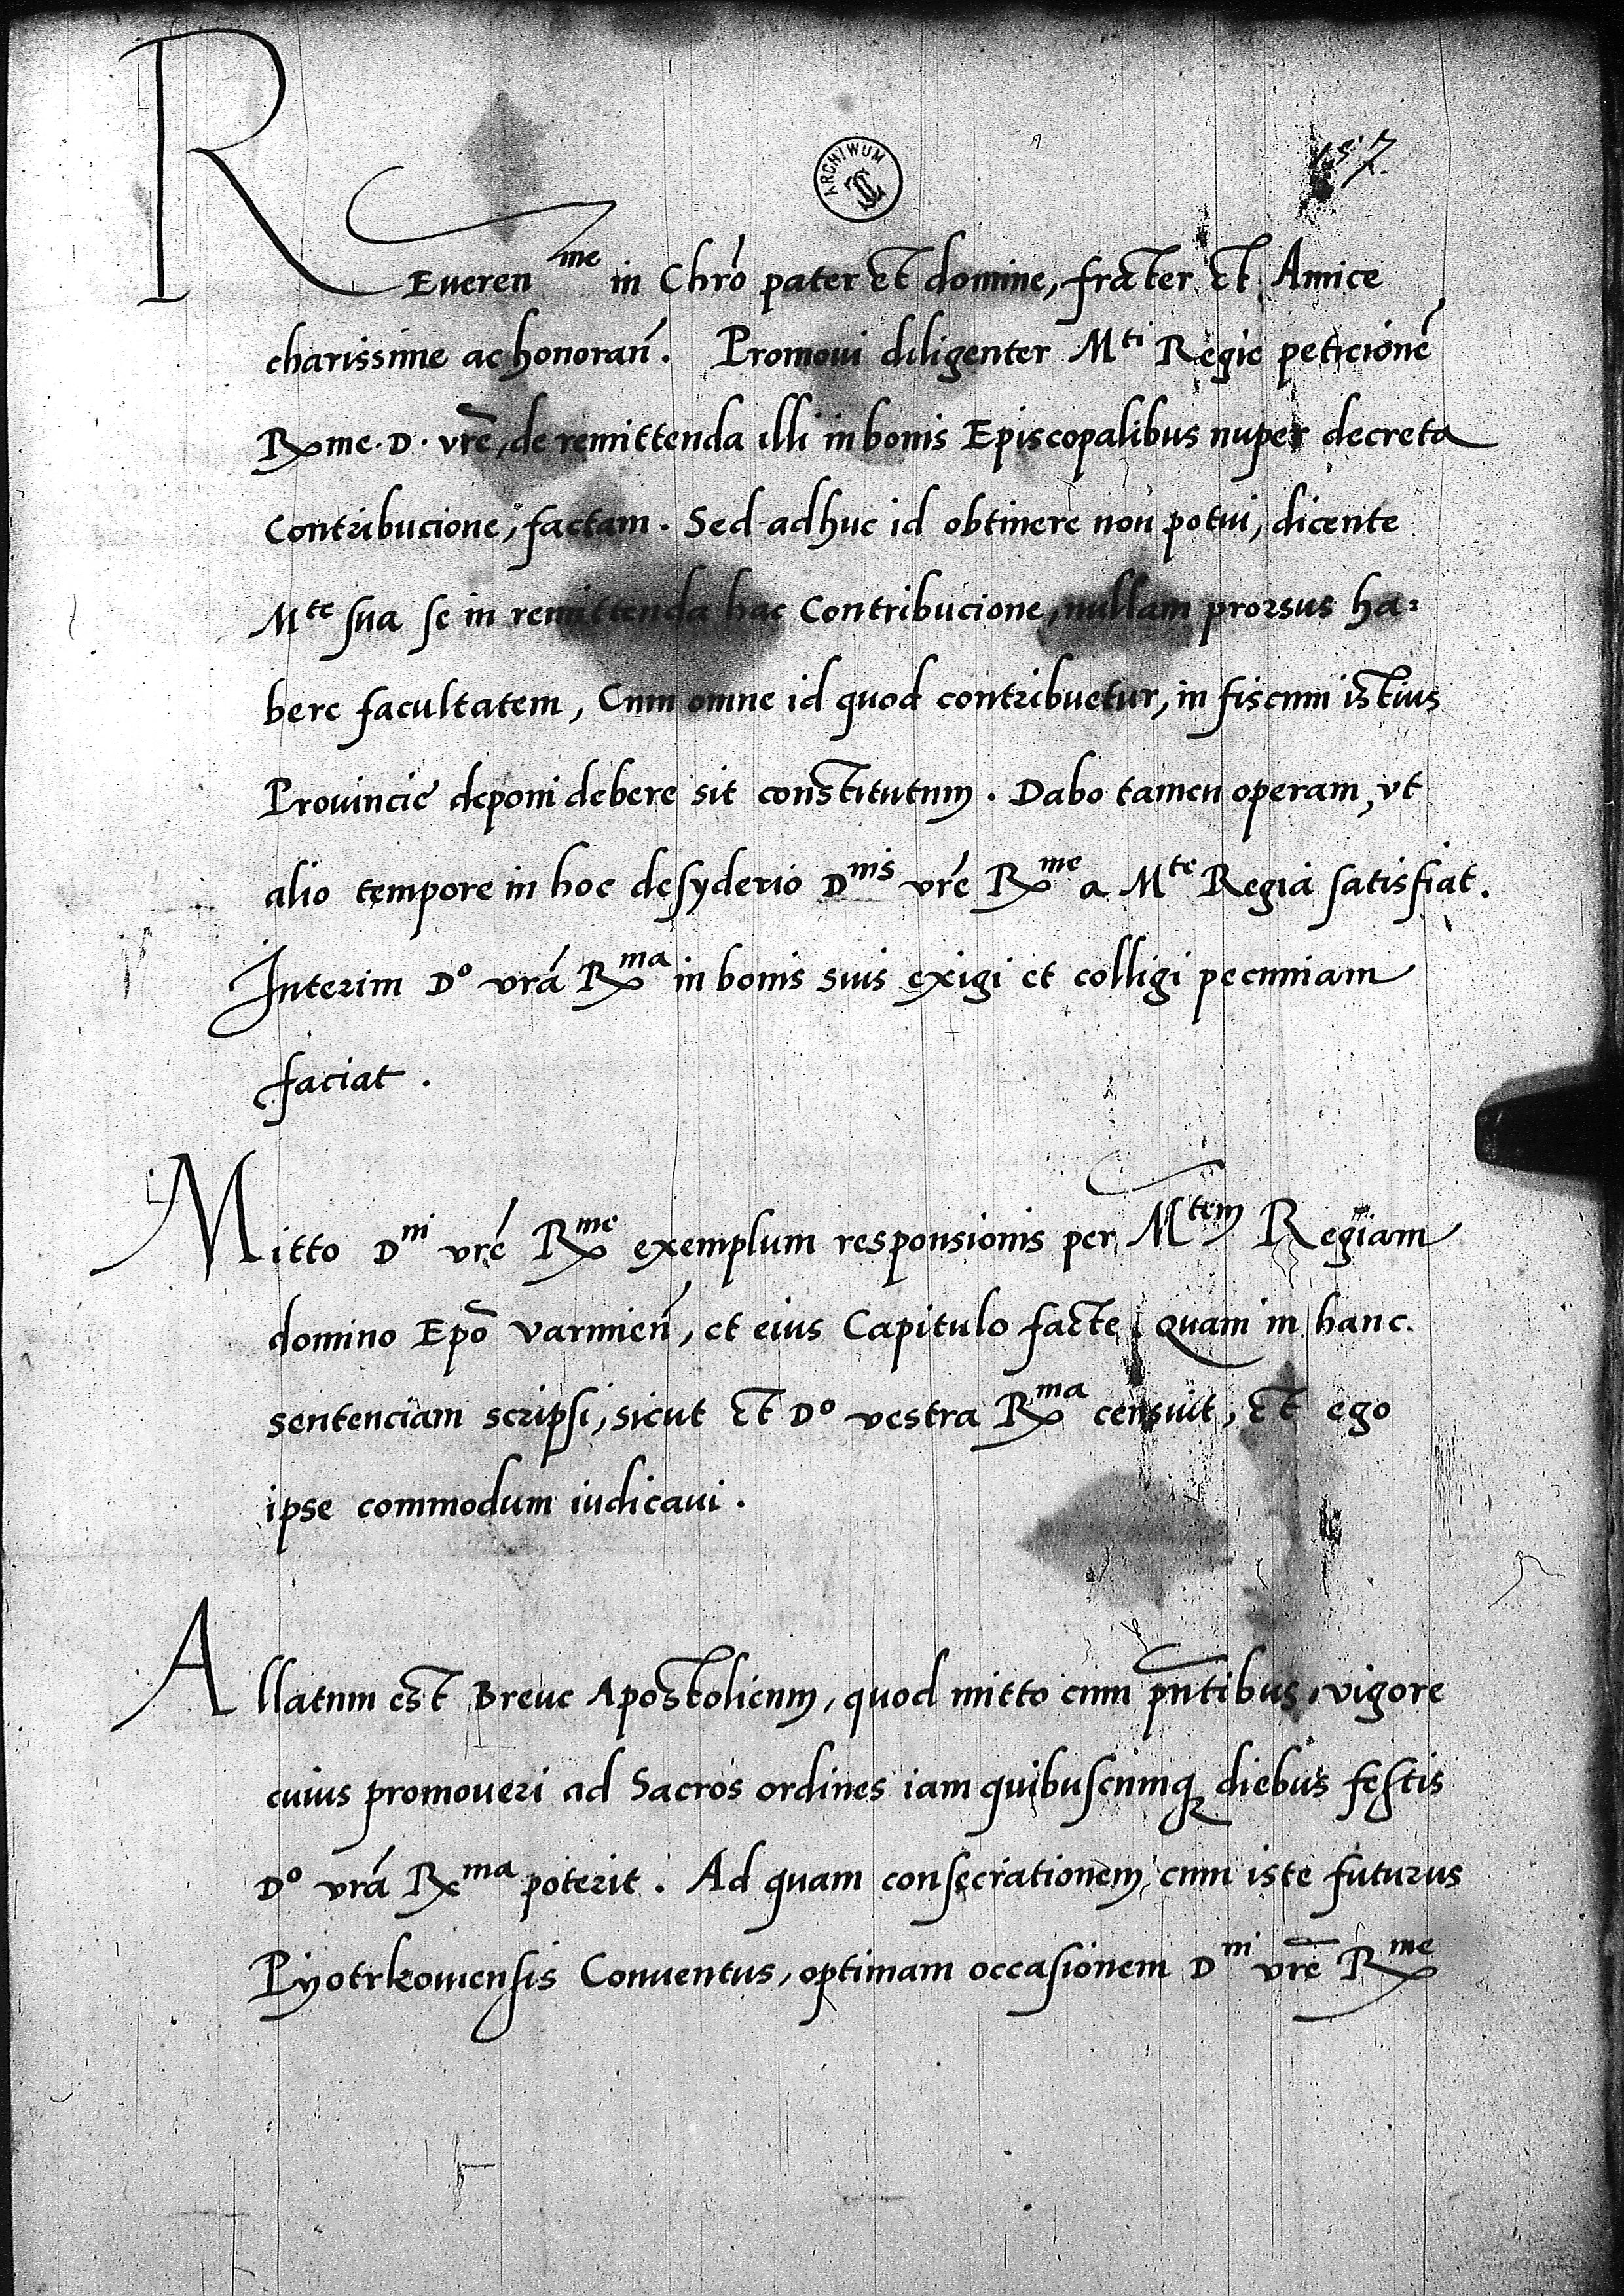 ARCHIWUM
157.
REueren^me in Chr̃o pater et domine, frater et Amice
charissime ac honorañ. Promoui diligenter M^ti Regie peticionẽ
Rxme. D. vr̃e, de remittenda illi in bonis Episcopalibus nuper decreta
Contribucione, factam. Sed adhuc id obtinere non potui, dicente
M^te sua se in remittenda hac Contribucione, nullam prorsus ha=
bere facultatem, Cum omne id quod contribuetur, in fiscum istius
Prouincie deponi debere sit constitutum. Dabo tamen operam, vt
alio tempore in hoc desyderio D^nis vr̃e Rx^me a M^te Regia satisfiat.
Interim D^o vr̃a Rx^ma in bonis suis exigi et colligi pecuniam
faciat.
Mitto D^ni vr̃e Rx^me exemplum responsionis per M^tem Regiam
domino Ep̃o varmieñ, et eius Capitulo facte, quam in hanc
sentenciam scripsi, sicut et D^o vestra Rx^ma censuit, et ego
ipse commodum iudicaui.
Allatum est Breue Apostolicum, quod mitto cum pñtibus, vigore
cuius promoueri ad Sacros ordines iam quibuscumq diebus festis
D^o vr̃a Rx^ma poterit. Ad quam consecrationem, cum iste futurus
Pyotrkouiensis Conuentus, optimam occasionem D^ni vr̃e Rx^me